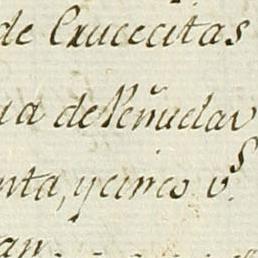 de Crucecitas
ua de Peñuelas
nta, y cinco v.s
an